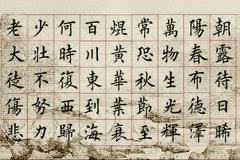 朝露待日晞
陽春布德澤
萬物生光輝
常恐秋節至
焜黃華葉衰
百川東到海
何時復西歸
少壯不努力
老大徒傷悲